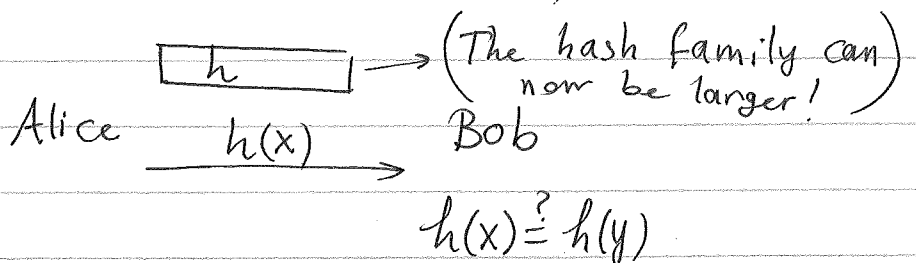 h → (The hash family can
now be larger!)
Alice h(x) Bob
h(x) ≟ h(y)